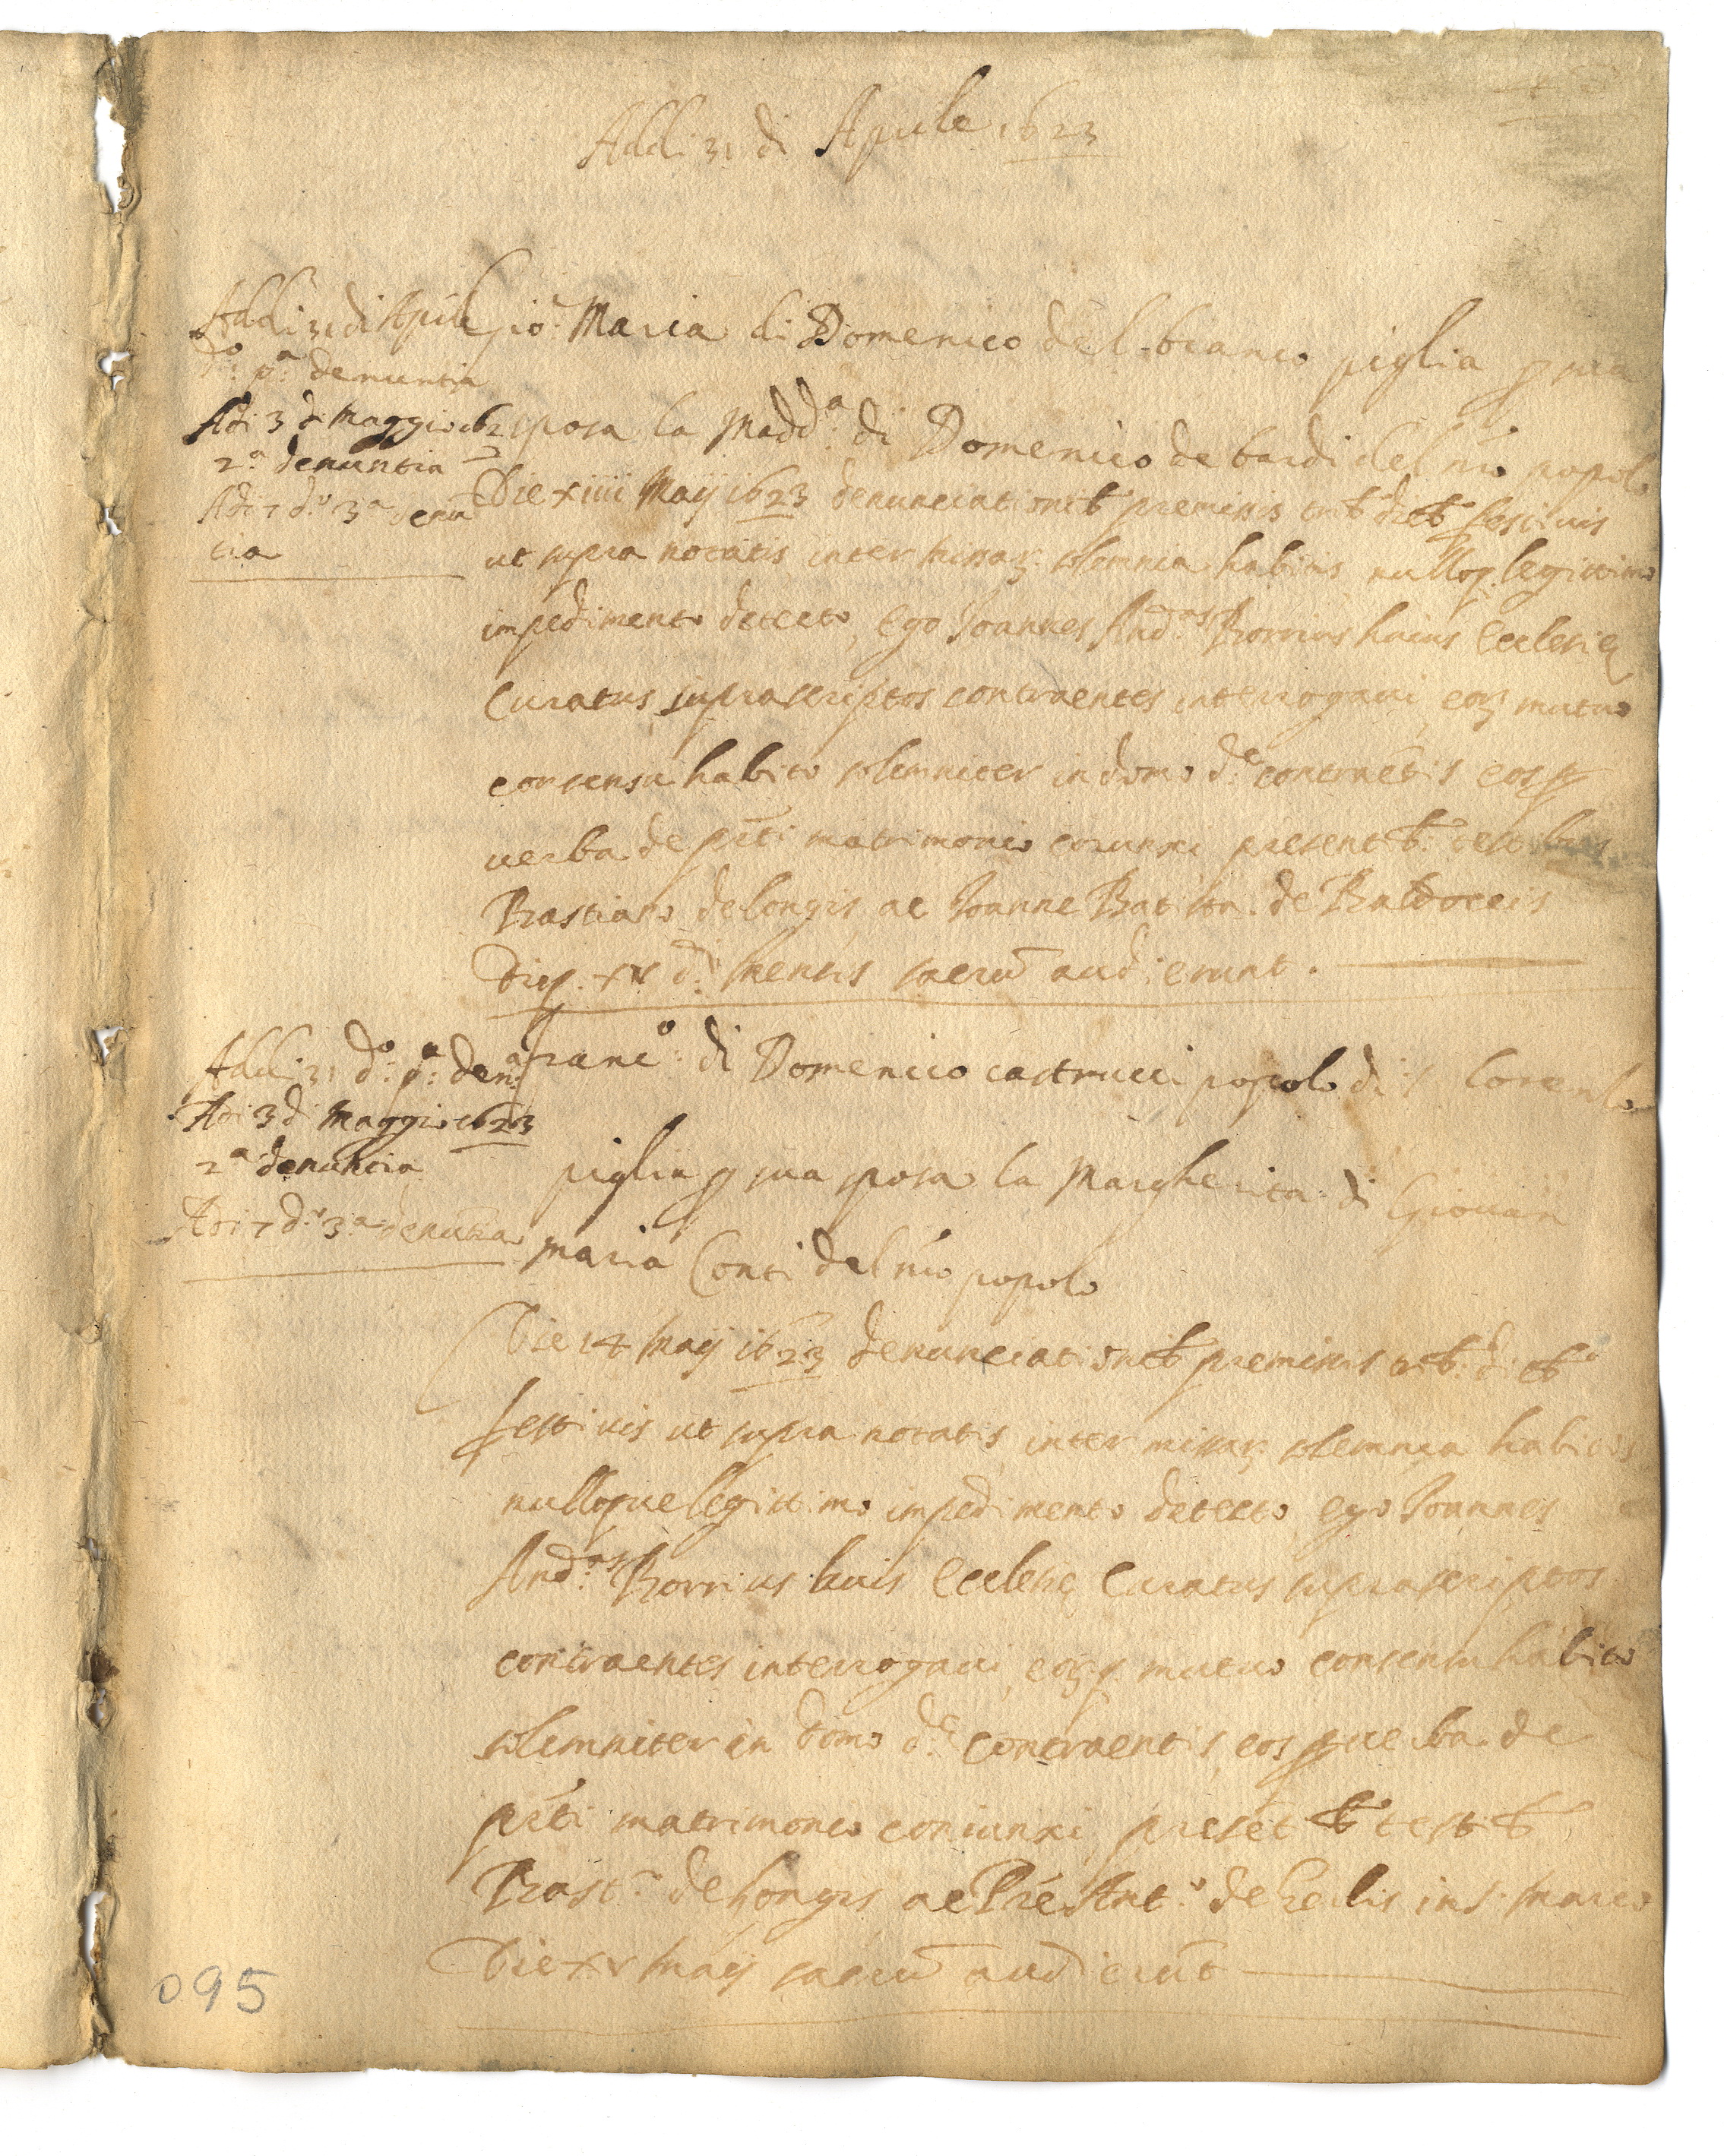 Addi 31 di Aprile 1623
Addi 31 di Aprile
d.o p.a denuntia
Adi 3 d Maggio 162
3
2.a denuntia
Adi 7 d.o 3.a denū
tia
Gio: Maria di Domenico del bianco piglia p sua
sposa la Madd.a di Domenico de bardi del n̄ro popolo
Die xiiii Maij 1623 denunciationib premissis trib dieb festiuis
ut supra notatis inter missaꝝ solemnia habitis nulloq legitimo
impedimento detecto, ego Joannes And.as Borrius huius Ecclesię
Curatus suprascriptos contraentes interrogaui, eoꝝ mutuo
consensu habito solemniter in domo d.e contraētis eos p
verba de pn̄ti matrimonio coniunxi presentib. testibus
Bastiano de longis, ac Joanne Batista de Baldoccis
Dieq. xv d.i Mensis sacrū audierunt.
Addi 31 d.o p.a den.a
Adi 3 d Maggio 1623
2.a denuntia
Adi 7 d.o 3.a denūtia
Franc.o di Domenico castrucci popolo di s Lorenzo
piglia p sua sposa la Margherita di Giouan
maria Conti del n̄ro popolo
Die 14 Maij 1623 denunciationib premissis trib. dieb
festiuis ut supra notatis inter missaꝝ solemnia habitis
nulloque legittimo impedimento detecto ego Joannes
And.as Borrius huis Ecclesię Curatus suprascriptos
contraentes interrogaui, eoꝝq. mutuo consensu habito
solemniter in domo d.e contraentis, eos p verba de
pn̄ti matrimonio coniunxi, presēt ib testib
Bast.o de longis ac Prē Ant.o de in s. Marco
Die xv Maij sacrū audierūt
095